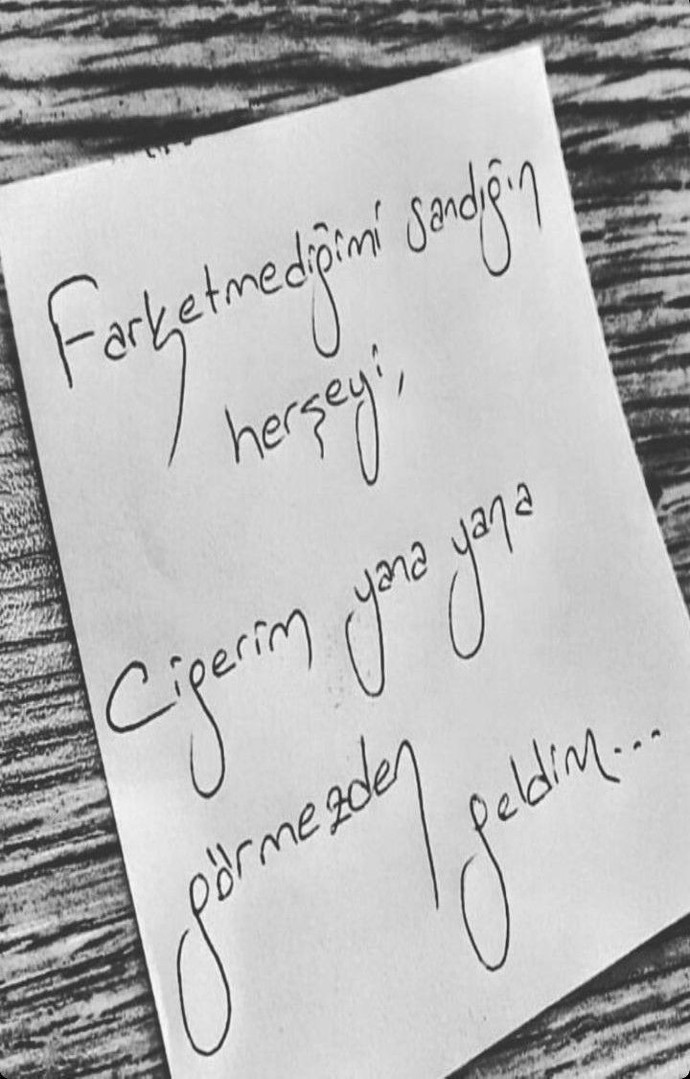 Farketmediğimi sandığın
herşeyi,
Cigerim yana yana
görmezden geldim...